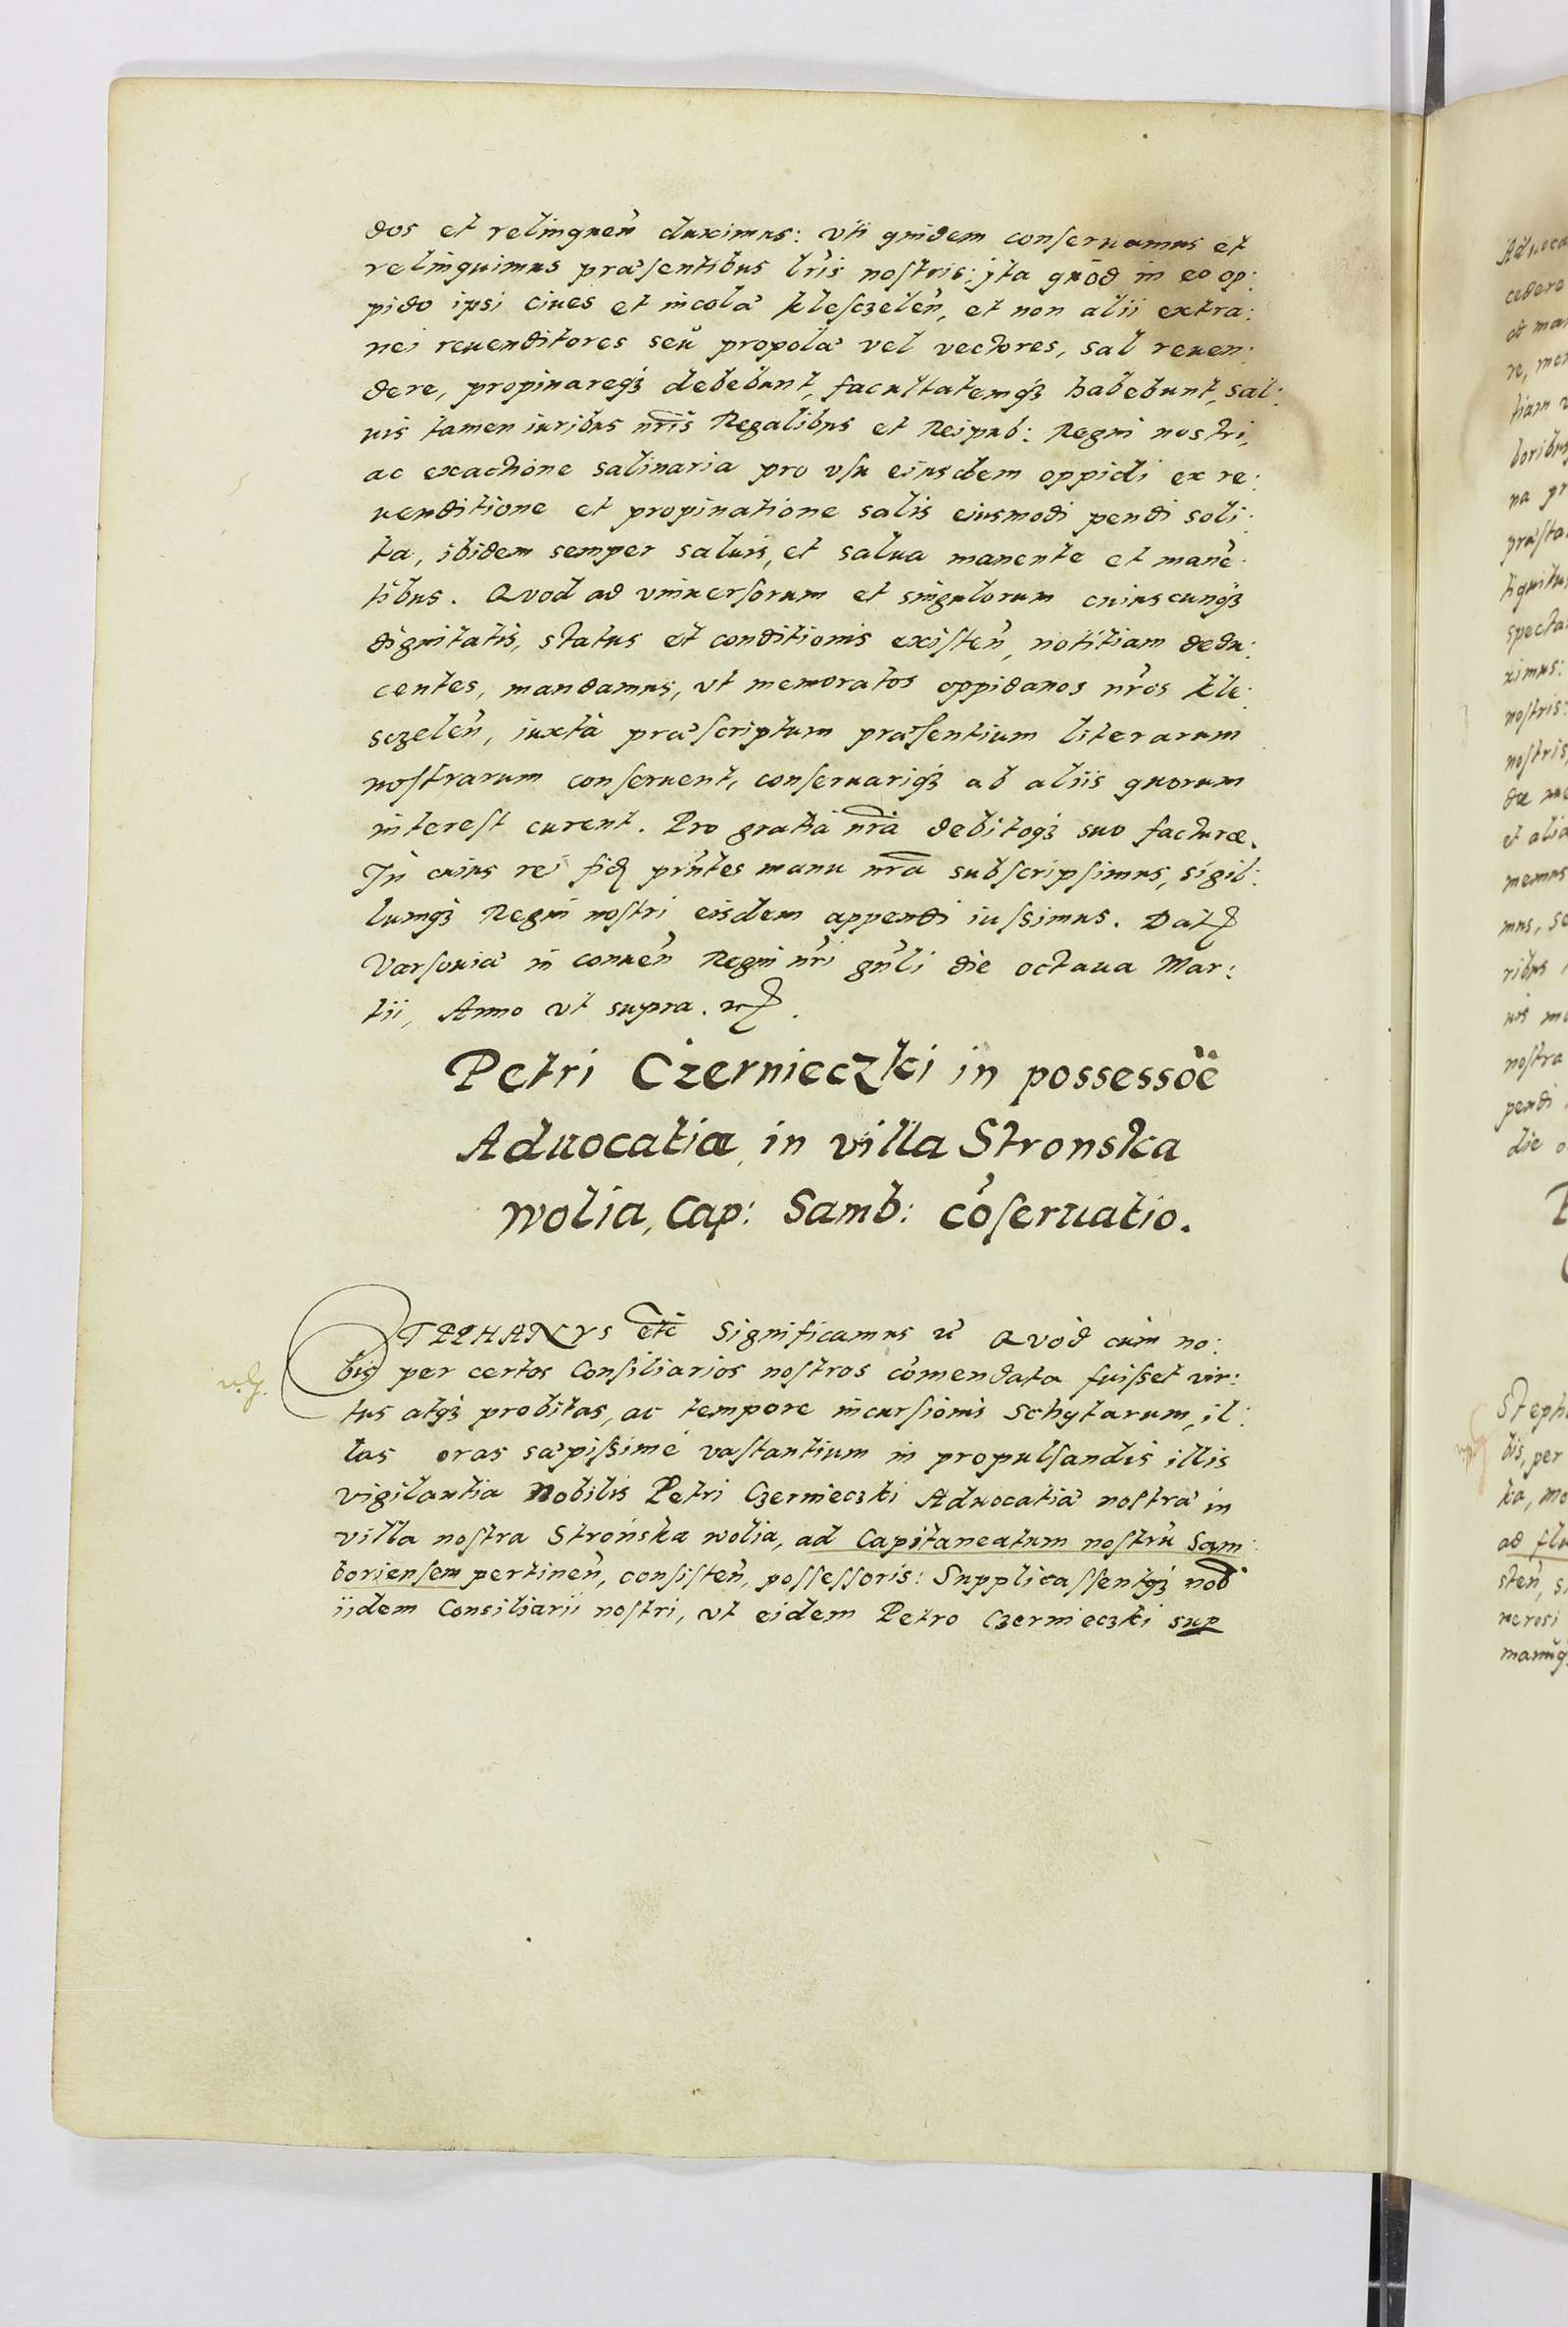 dos et relinquen̄ duximus: vti quidem conseruamus et
relinquimus præsentibus lr̄is nostris: ita quòd in eo op:
pido ipsi ciues et incolæ klesczelen̄, et non alii extra:
nei reuenditores seu propolæ vel vectores, sal reuen:
dere, propinareq3 debebunt, facultatemq3 habebunt, sal:
uis tamen iuribus nr̄is Regalibus et Reipub: Regni nostri,
ac exactione salinaria pro vsu eiusdem oppidi ex re:
uenditione et propinatione salis eiusmodi pendi soli:
ta, ibidem semper saluis, et salua manente et manē:
tibus. Quod ad vniuersorum et singulorum cuiuscunq3
dignitatis, status et conditionis existen̄, notitiam dedu:
centes, mandamus, vt memoratos oppidanos nr̄os kle:
sczelen̄, iuxta præscriptum præsentium literarum
nostrarum conseruent, conseruariq3 ab aliis quorum
interest curent. Pro gratia nr̄a debitoq3 suo facturæ.
In cuius rei fid prn̄tes manu nr̄a subscripsimus, sigil:
lumq3 Regni nostri eisdem appendi iussimus. Dat
Varsouiæ in conuen̄ Regni nr̄i gn̄li die octaua Mar:
tii, Anno vt supra.
Petri Czernieczki in possessōe
Aduocatiæ in villa Stronska
wolia, Cap: Samb: cōseruatio.
STEPHANVS etc̄ Significamus Quòd cum no:
bis per certos Consiliarios nostros cōmendata fuisset vir:
tus atq3 probitas, ac tempore incursionis Schytarum, il:
las oras sæpissimè vastantium in propulsandis illis
vigilantia Nobilis Petri Czernieczki Aduocatiæ nostræ in
villa nostra Strońska wolia, ad Capitaneatum nostrū Sam:
boriensem pertinen̄, consisten̄, possessoris: Supplicassentq3 nob
iidem Consiliarii nostri, vt eidem Petro Czernieczki sup